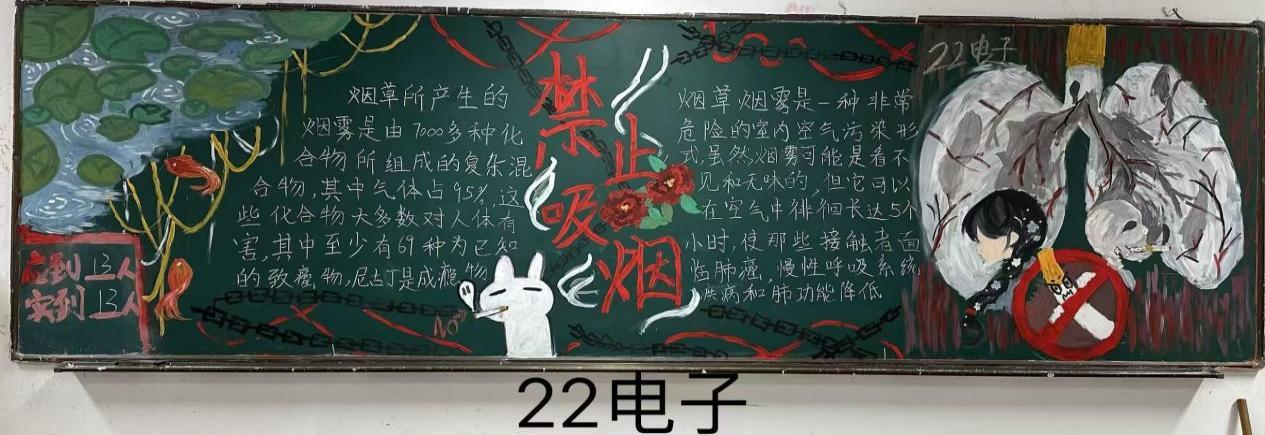 22电子
禁止吸烟
烟草所产生的
烟雾是由7000多种化
合物所组成的复杂混
合物,其中气体占95%,这
些化合物大多数对人体有
害,其中至少有69种为已知
的致癌物,尼古丁是成瘾物
烟草烟雾是一种非常
危险的室内空气污染形
式,虽然,烟雾可能是看不
见和无味的,但它可以
在空气中徘徊长达5个
小时,使那些接触者面
临肺癌,慢性呼吸系统
疾病和肺功能降低
应到13人
实到13人
NO
22电子